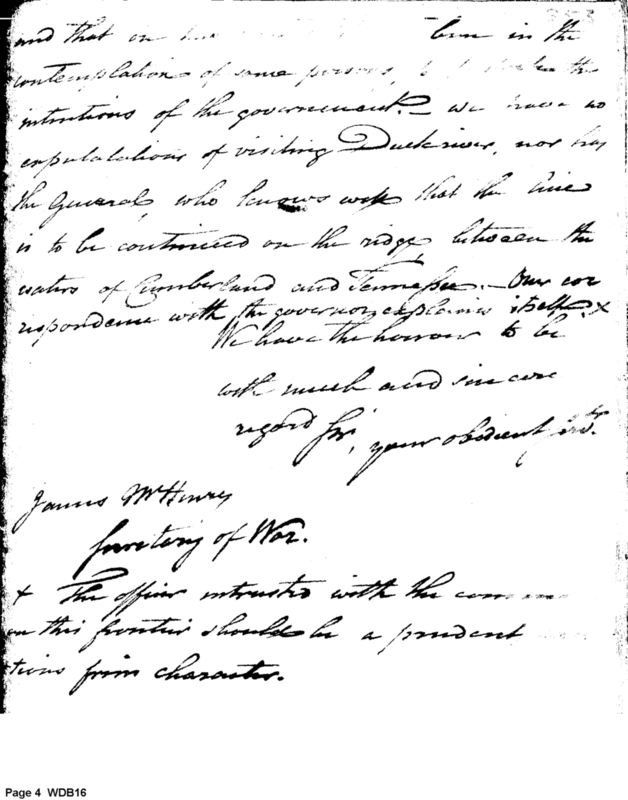 and that on been in the
contemplation of some persons, the
intentions of the government. – we have no
expectations of visiting Duck river, nor has
the General, who knows well that the line
is to be continued on the ridge between the
waters of Cumberland and Tennessee. – Our cor
respondence with the governor explains itself. x
We have the honour to be
with much and sincere
regard Sir, your obedient
James McHenry
Secretary of War.
x The officer intrusted with the
on this frontier should be a prudent
firm character.
Page 4 WDB16